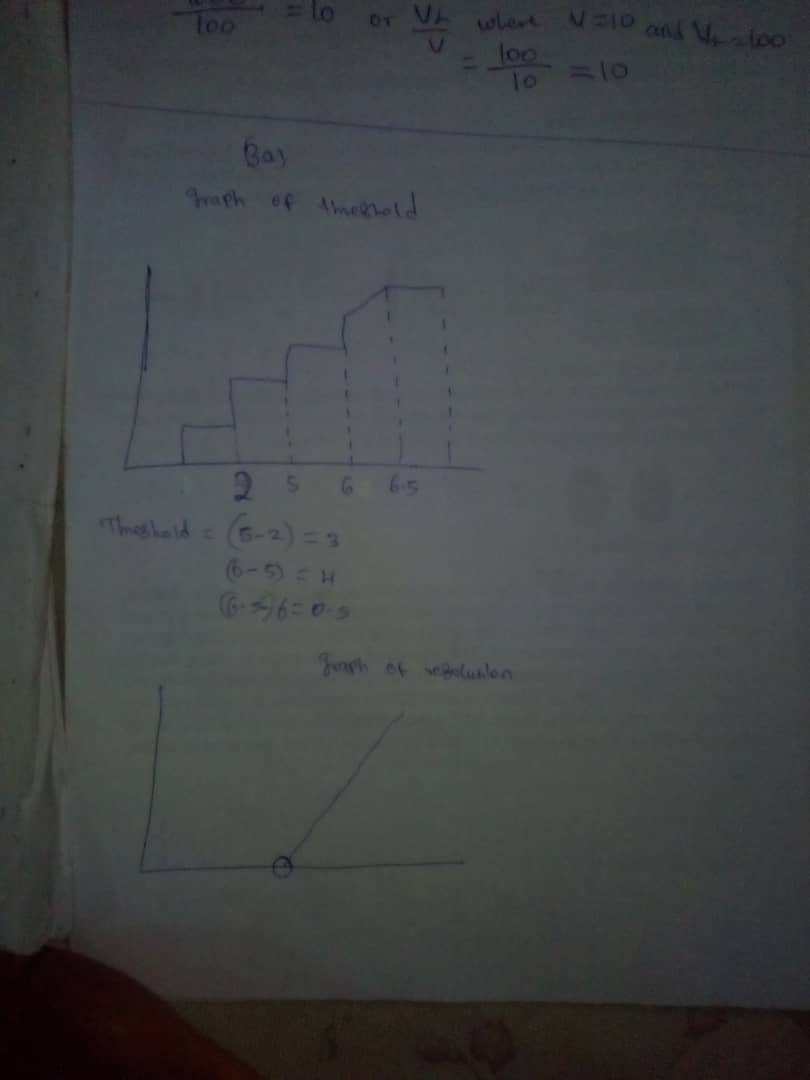 100 = 10 or VL/V where V=10 and VL=100
= 100/10 = 10
Ba)
graph of threshold
2 5 6 6.5
Threshold = (5-2) = 3
(6-5) = 4
(6.5-)6=0.5
graph of resolution